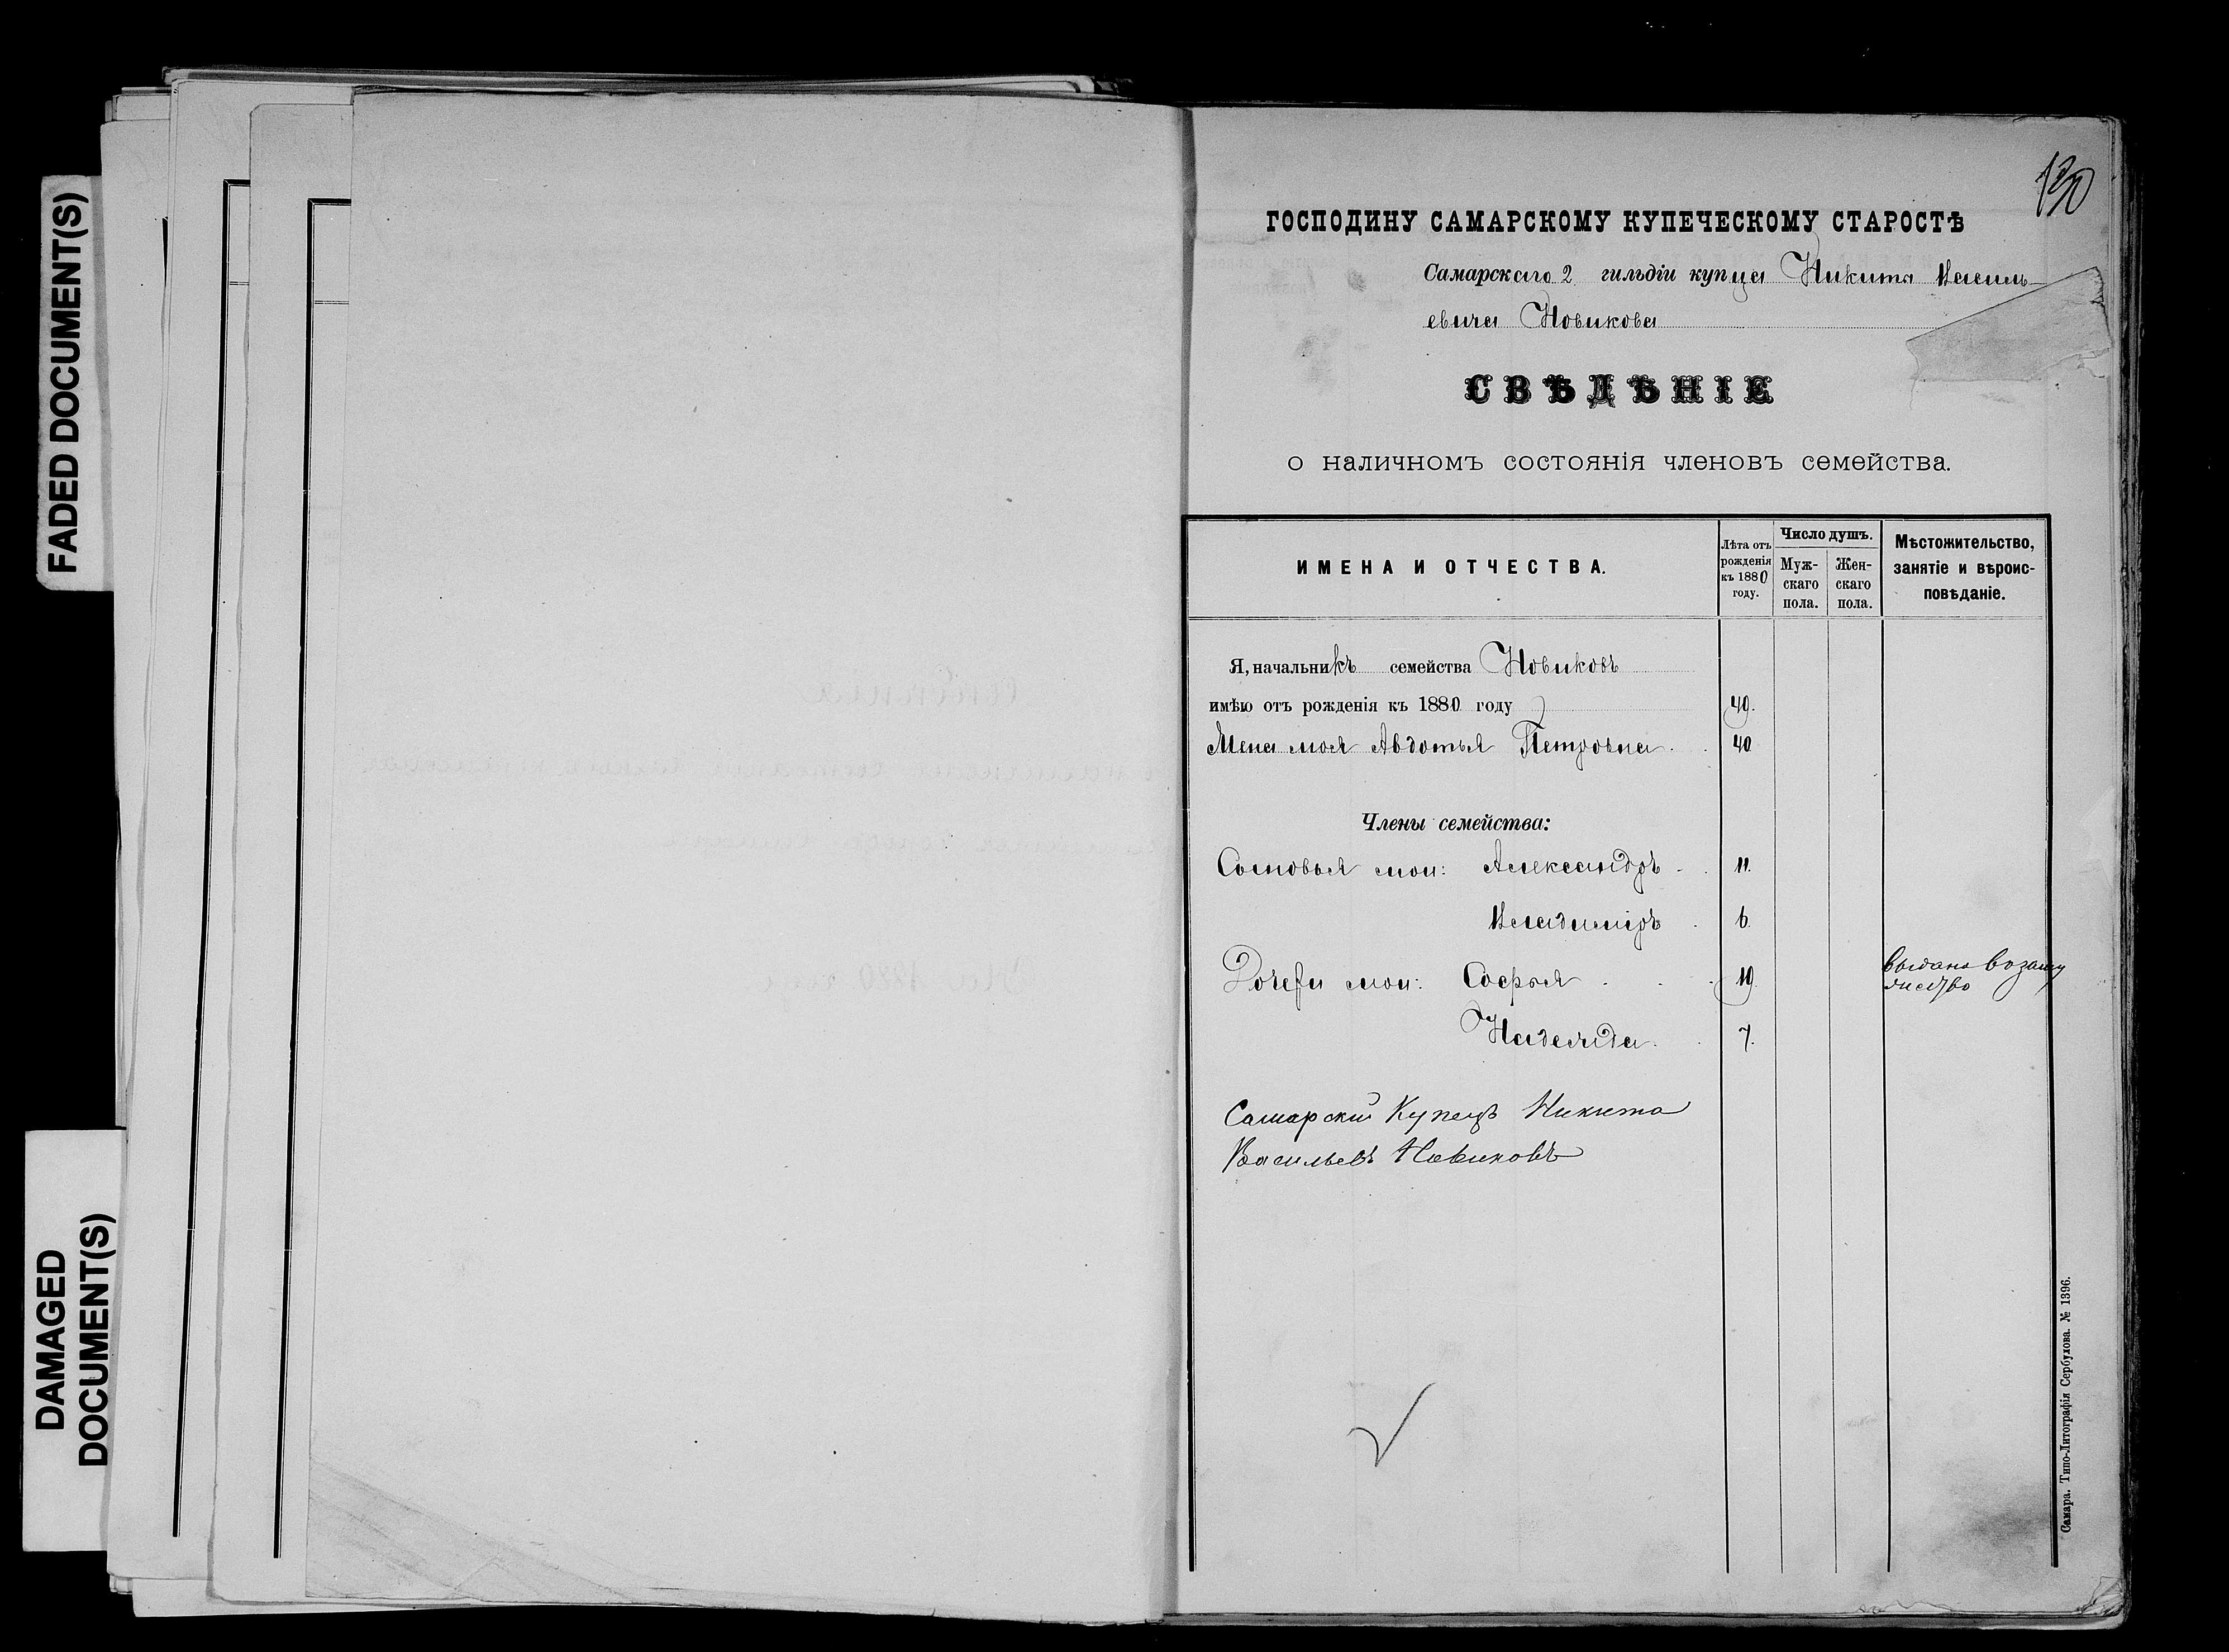 FADED DOCUMENT(S)
DAMAGED
DOCUMENT(S)
190
ГОСПОДИНУ САМАРСКОМУ КУПЕЧЕСКОМУ СТАРОСТѢ
Самарскаго 2 гильдіи купца Никита Василь-
евича Новикова
СВѢДѢНІЕ
о наличномъ состоянія членовъ семейства.
ИМЕНА И ОТЧЕСТВА.
Лѣта отъ рожденія къ 1880 году.
Число душъ.
Муж-скаго пола.
Жен-скаго пола.
Мѣстожительство, занятіе и вѣроис-повѣданіе.
Я, начальникъ семейства Новиковъ
имѣю отъ рожденія къ 1880 году 49.
Жена моя Авдотья Петровна 40
Члены семейства:
Сыновья мои: Александръ 11.
Владиміръ 6
Дочери мои: Софья 19 выдана взаму
жество
Надежда 7.
Самарскій Купецъ Никита
Васильевъ Новиковъ
Самара. Типо-Литографія Сербулова. № 1396.